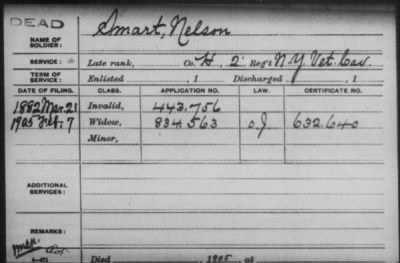 DEAD
NAME OF SOLDIER: Smart, Nelson
SERVICE: Late rank, Co. H, 2 Reg't N.Y. Vet. Cav.
TERM OF SERVICE: Enlisted , 1 Discharged , 1
DATE OF FILING. CLASS. APPLICATION NO. LAW. CERTIFICATE NO.
1882 Mar. 21 Invalid, 443.756
1905 Feb. 7 Widow, 834.563 O.J. 632.640
Minor,
ADDITIONAL SERVICES:
REMARKS:
Died 1905, at